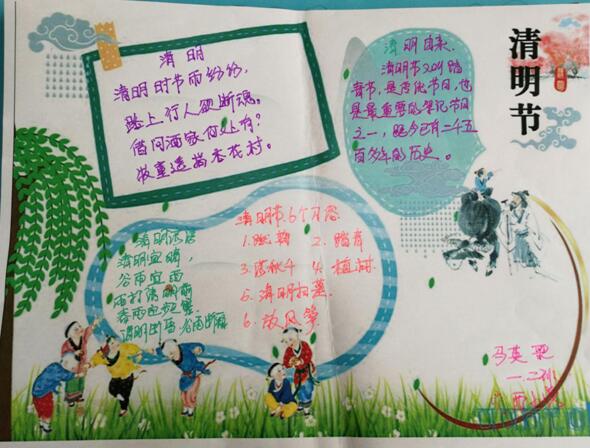 清明
清明时节雨纷纷,
路上行人欲断魂。
借问酒家何处有?
牧童遥指杏花村。
清明由来
清明节又叫踏
青节,是传统节日,也
是最重要的祭祀节日
之一,距今已有二千五
百多年的历史。
清明节
清明节6个习俗
1.蹴鞠 2.踏青
3.荡秋千 4.植树
5.清明扫墓
6.放风筝
清明
清明宜晴,
谷雨宜雨
雨打清明前
清明断雪 谷雨断霜
马英